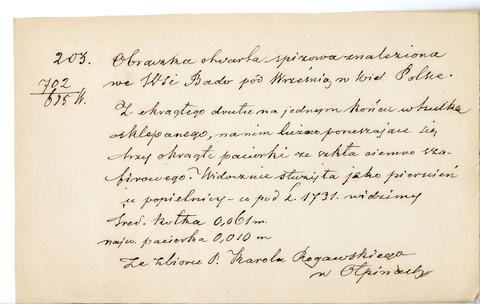 203. Obrączka otwarta spiżowa znaleziona
792 we Wsi Bado pod Wrześnią w Wiel Polsce.
695 W.
Z okrągłego drutu na jednym końcu w kulka
sklepanego, na nim luźno poruszające się
trzy okrągłe paciorki ze szkła ciemno sza-
firowego. Widocznie służyła jako pierścień
u popielnicy - u pod L 1731. widzimy
Śred. kółka 0,061 m.
najw. paciorka 0,010 m
Ze zbioru P. Karola Rogawskiego
w Ołpinach